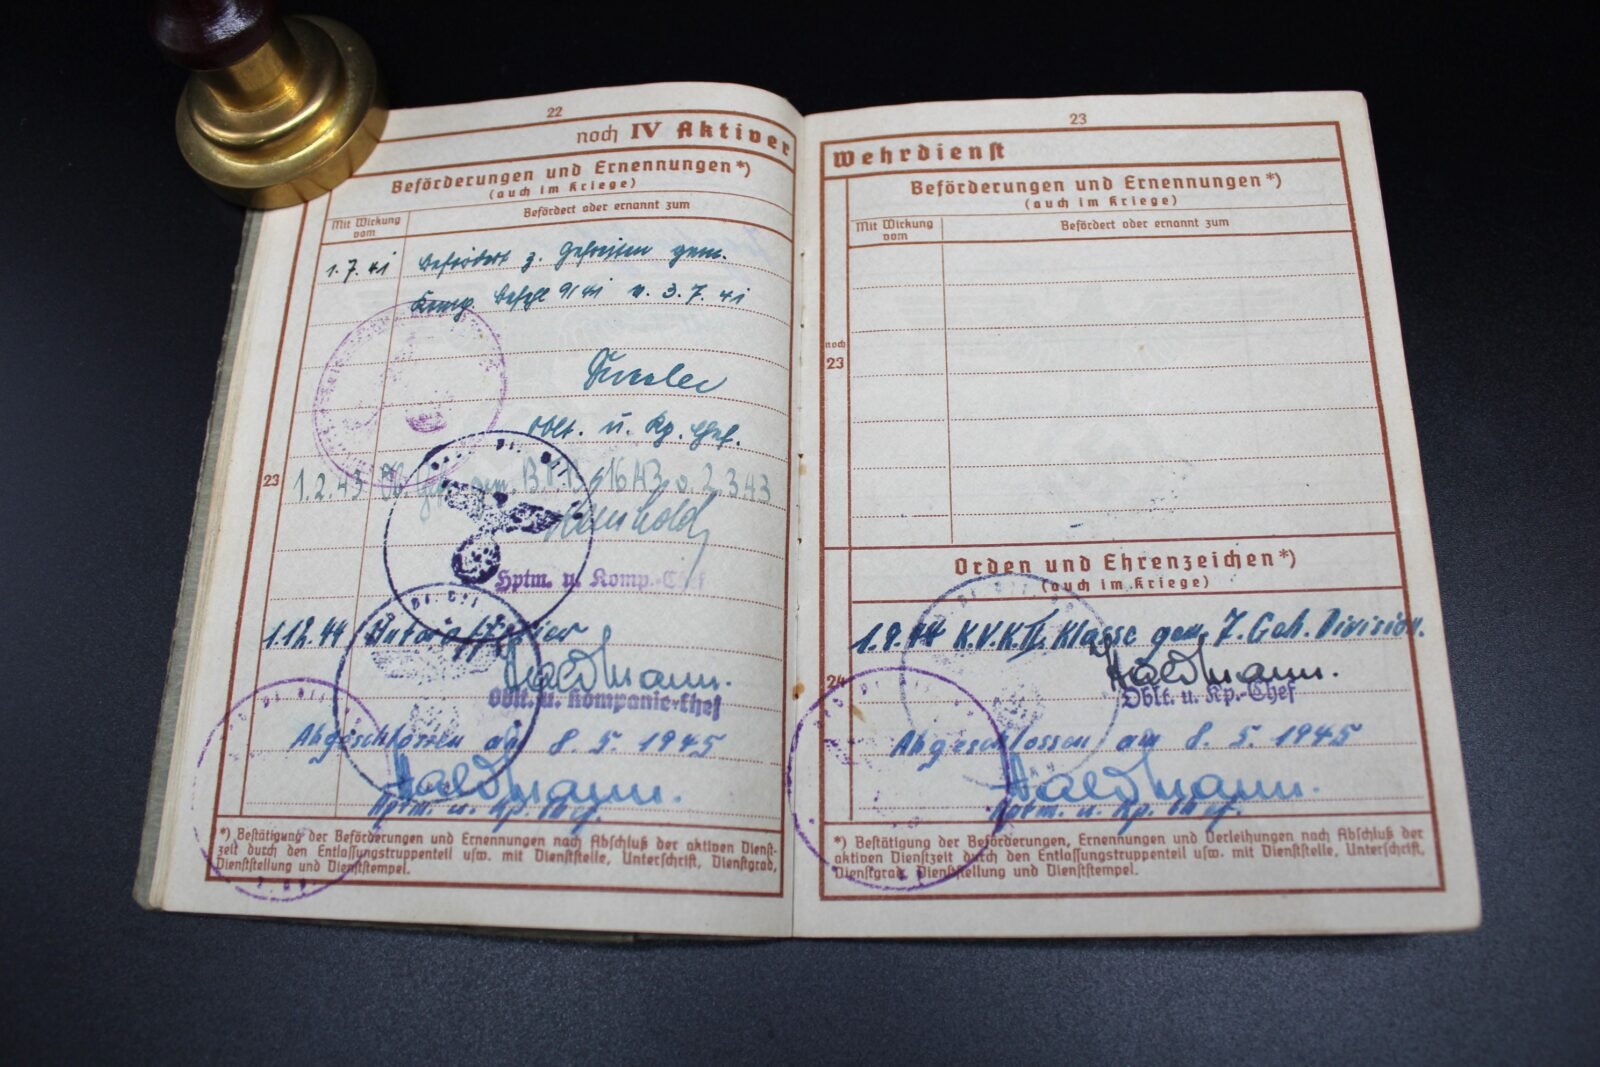 22
noch IV Aktiver
Beförderungen und Ernennungen *)
(auch im Kriege)
Mit Wirkung vom
Befördert oder ernannt zum
1.7.41 Befördert z. Gefreiten gem.
Befehl 9/41 v. 3.7.41
Oblt. u. Kp. Chef.
23
1.2.43 gem. 2.3.43
Hptm. u. Komp.-Chef
1.12.44 Unteroffizier
Oblt. u. Kompanie-Chef
Abgeschlossen am 8.5.1945
Hptm. u. Kp. Chef.
*) Bestätigung der Beförderungen und Ernennungen nach Abschluß der aktiven Dienst-
zeit durch den Entlassungstruppenteil usw. mit Dienststelle, Unterschrift, Dienstgrad,
Dienststellung und Dienststempel.
23
Wehrdienst
Beförderungen und Ernennungen *)
(auch im Kriege)
Mit Wirkung vom
Befördert oder ernannt zum
noch
23
Orden und Ehrenzeichen *)
(auch im Kriege)
1.9.44 K.V.K. II. Klasse gem. 7. Geb. Division.
24
Oblt. u. Kp.-Chef
Abgeschlossen am 8.5.1945
Hptm. u. Kp. Chef.
*) Bestätigung der Beförderungen, Ernennungen und Verleihungen nach Abschluß der
aktiven Dienstzeit durch den Entlassungstruppenteil usw. mit Dienststelle, Unterschrift,
Dienstgrad, Dienststellung und Dienststempel.